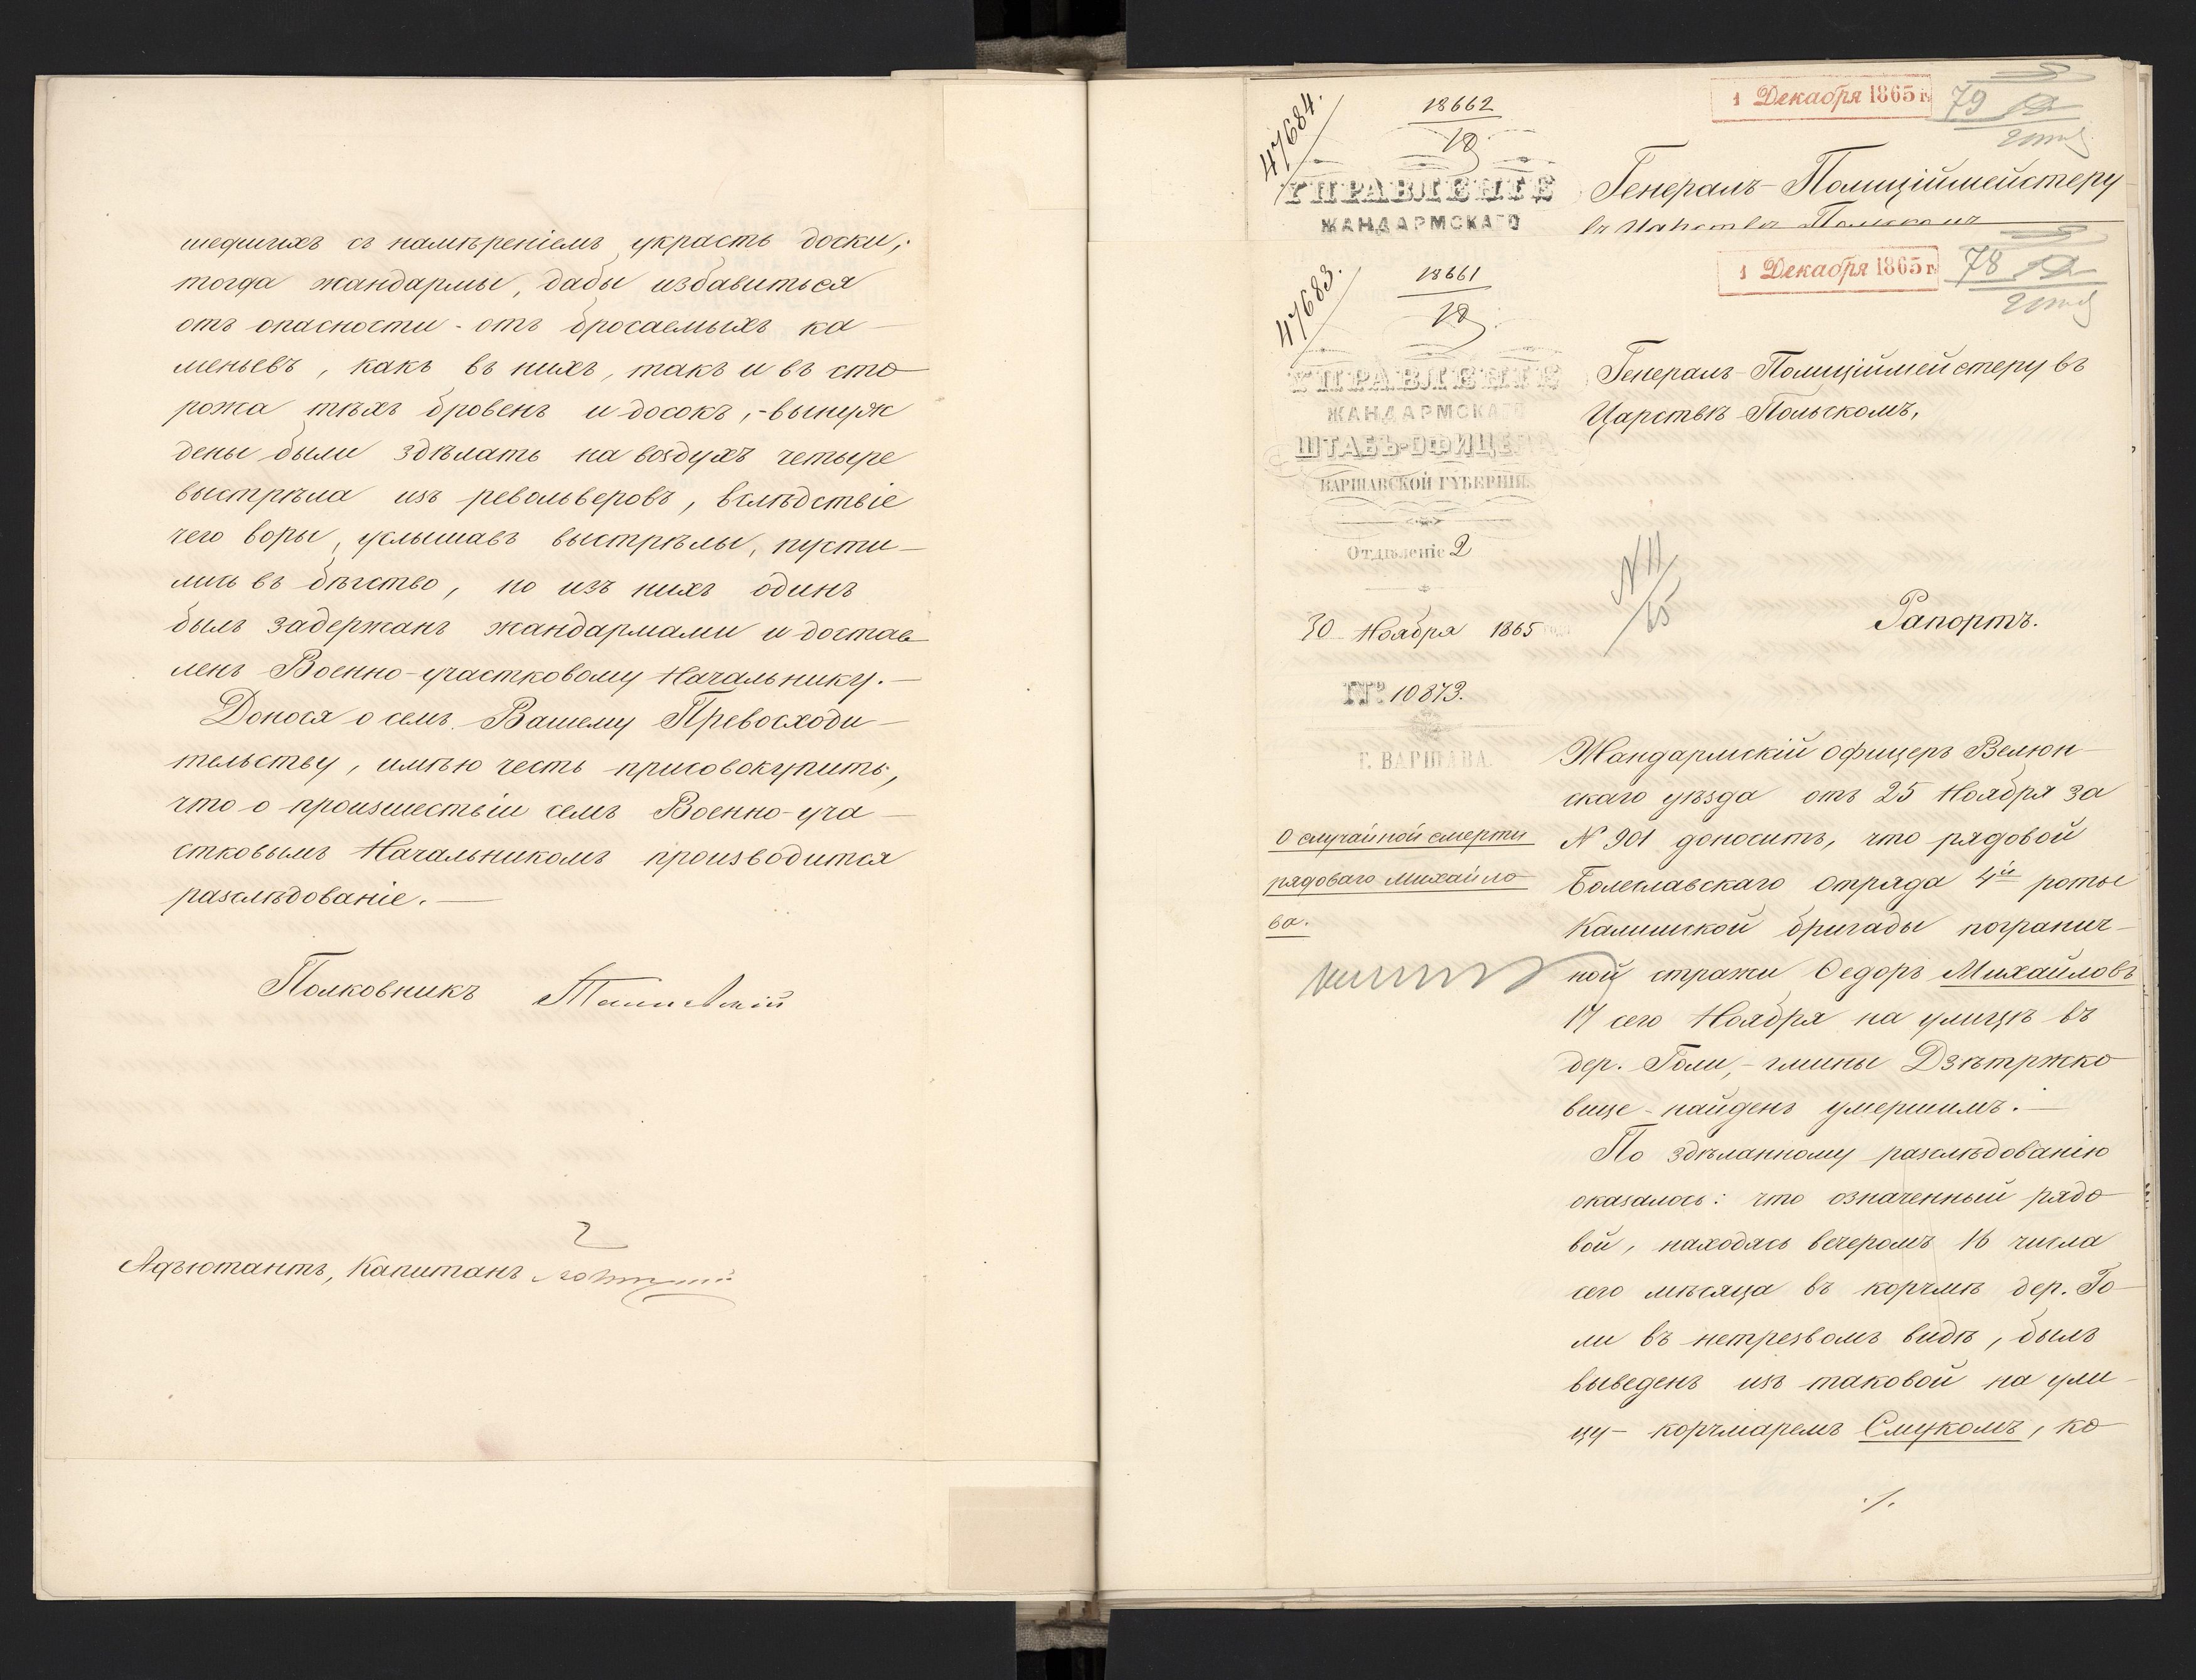 шедшихъ съ намѣреніемъ украсть доски;
тогда жандармы, дабы избавиться
отъ опасности отъ бросаемыхъ ка-
меньевъ, какъ въ нихъ, такъ и въ сто-
рожа тѣхъ бровенъ и досокъ, - вынуж
дены были здѣлать на воздухъ четыре
выстрѣла изъ револьверовъ, вслѣдствіе
чего воры, услышавъ выстрѣлы, пусти-
лись въ бѣгство, но изъ нихъ одинъ
былъ задержанъ жандармами и достав-
ленъ Военно-участковому Начальнику. —
Донося о семъ Вашему Превосходи-
тельству, имѣю честь присовокупить,
что о произшествіи семъ Военно-уча-
стковымъ Начальникомъ производится
разслѣдованіе. —
Полковникъ
2
Адъютантъ, Капитанъ
47684.
18662
1 Декабря 1865 г.
79
УПРАВЛЕНІЕ
ЖАНДАРМСКАГО
Генералъ-Полиціймейстеру
въ Царствѣ Польскомъ
47683.
18661
1 Декабря 1865 г.
78
УПРАВЛЕНІЕ
ЖАНДАРМСКАГО
ШТАБЪ-ОФИЦЕРА
ВАРШАВСКОЙ ГУБЕРНІИ.
Отдѣленіе 2
30 Ноября 1865 года
№ 10873.
Г. ВАРШАВА.
О случайной смерти
рядоваго Михайло-
ва.
Генералъ-Полиціймейстеру въ
Царствѣ Польскомъ,
N 11/65
Рапортъ.
Жандармскій офицеръ Велюн-
скаго уѣзда отъ 25 Ноября за
N 901 доноситъ, что рядовой
Болеславскаго отряда 4й роты
Калишской бригады погранич-
ной стражи Ѳедоръ Михайловъ
17 сего Ноября на улицѣ въ
дер. Голи, - гмины Дзѣтржко-
вице - найденъ умершимъ. —
По здѣланному разслѣдованію
оказалось: что означенный рядо-
вой, находясь вечеромъ 16 числа
сего мѣсяца въ корчмѣ дер. Го-
ли въ нетрезвомъ видѣ, былъ
выведенъ изъ таковой на ули-
цу - корчмаремъ Смукомъ, ко-
./.